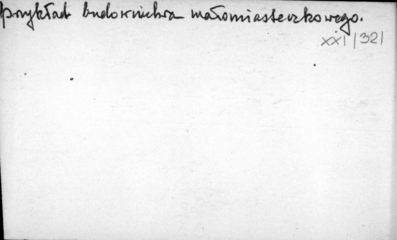 przykład budownictwa małomiasteczkowego.
XXI/321